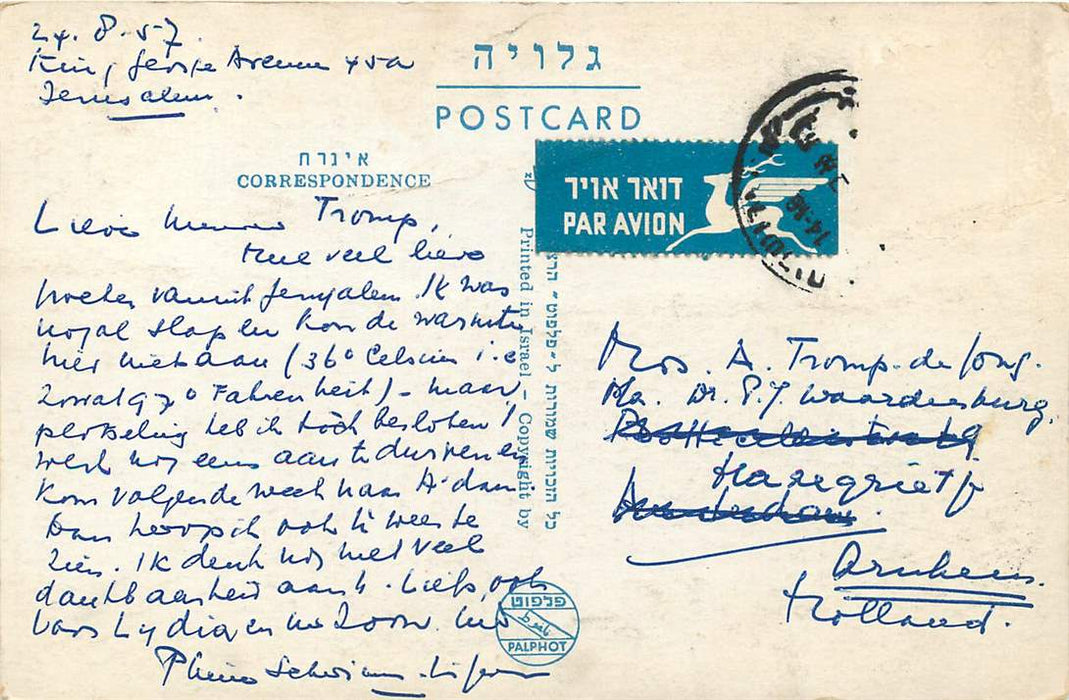 24.8.57.
King George Avenue 45a
Jerusalem.
גלויה
POSTCARD
אינרח
CORRESPONDENCE
דואר אויר
PAR AVION
Lieve Mevrouw Tromp,
Heel veel lieve
groeten vanuit Jeruzalem. Ik was
nogal slap en kon de warmte
hier niet aan (36° Celsius i.e.
zowat 97° Fahrenheit) - maar
plotseling heb ik toch besloten 't
werk nog eens aan te durven en
kom volgende week naar A'dam.
Dan hoop ik ook U weer te
zien. Ik denk nog met veel
dankbaarheid aan U. Liefs, ook
voor Lydia en Uw Zoon. Uw
Mrs. A. Tromp-de Jong.
p/a. Dr. P.J. Waardenburg.
Arnhem.
Holland.
Printed in Israel - Copyright by
כל הזכויות שמורות ל"פלפוט" הרצ
פלפוט
PALPHOT
14-15